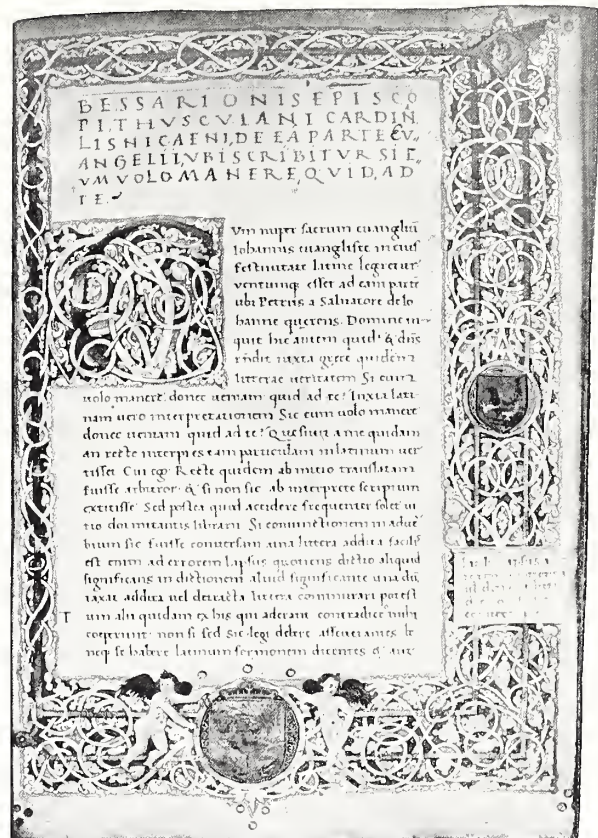 BESSARIONIS EPISCO
PI, THVSCVLANI CARDIN
LIS NICAENI, DE EA PARTE EV„
ANGELII, VBI SCRIBITVR SI E„
VM VOLO MANERE, QVID, AD
TE.
Vm nuper sacrum euangliū
Iohannis euangliste in eius
festiuitate latine legretur
ventumq; esset ad eam parte
ubi Petrus a Saluatore de Io
hanne querens. Domine in-
quit hic autem quid? & dn̄s
rn̄dit iuxta grece quidem
litterae ueritatem Si eum
uolo manere donec ueniam quid ad te? Iuxta lati-
nam uero interpretationem Sic eum uolo manere
donec ueniam quid ad te? Quesiuit a me quidam
an recte interpres eam particulam in latinum uer
tisset. Cui ego Recte quidem ab initio translatam
fuisse arbitror. & si non sic ab interprete scriptum
extitisse Sed postea quod accidere frequenter solet ui
tio dormitantis librarii Si coniunctionem in aduer
bium sic fuisse conuersam una littera addita facile
est enim ad errorem lapsus quotiens dictio aliquid
significans in dictionem aliud significante una dū
taxat addita uel detracta littera commutari potest
T um alii quidam ex his qui aderant contradice mihi
coeperunt non si sed sic legi debere asseuerantes
neq; se habere latinum sermonem dicentes &